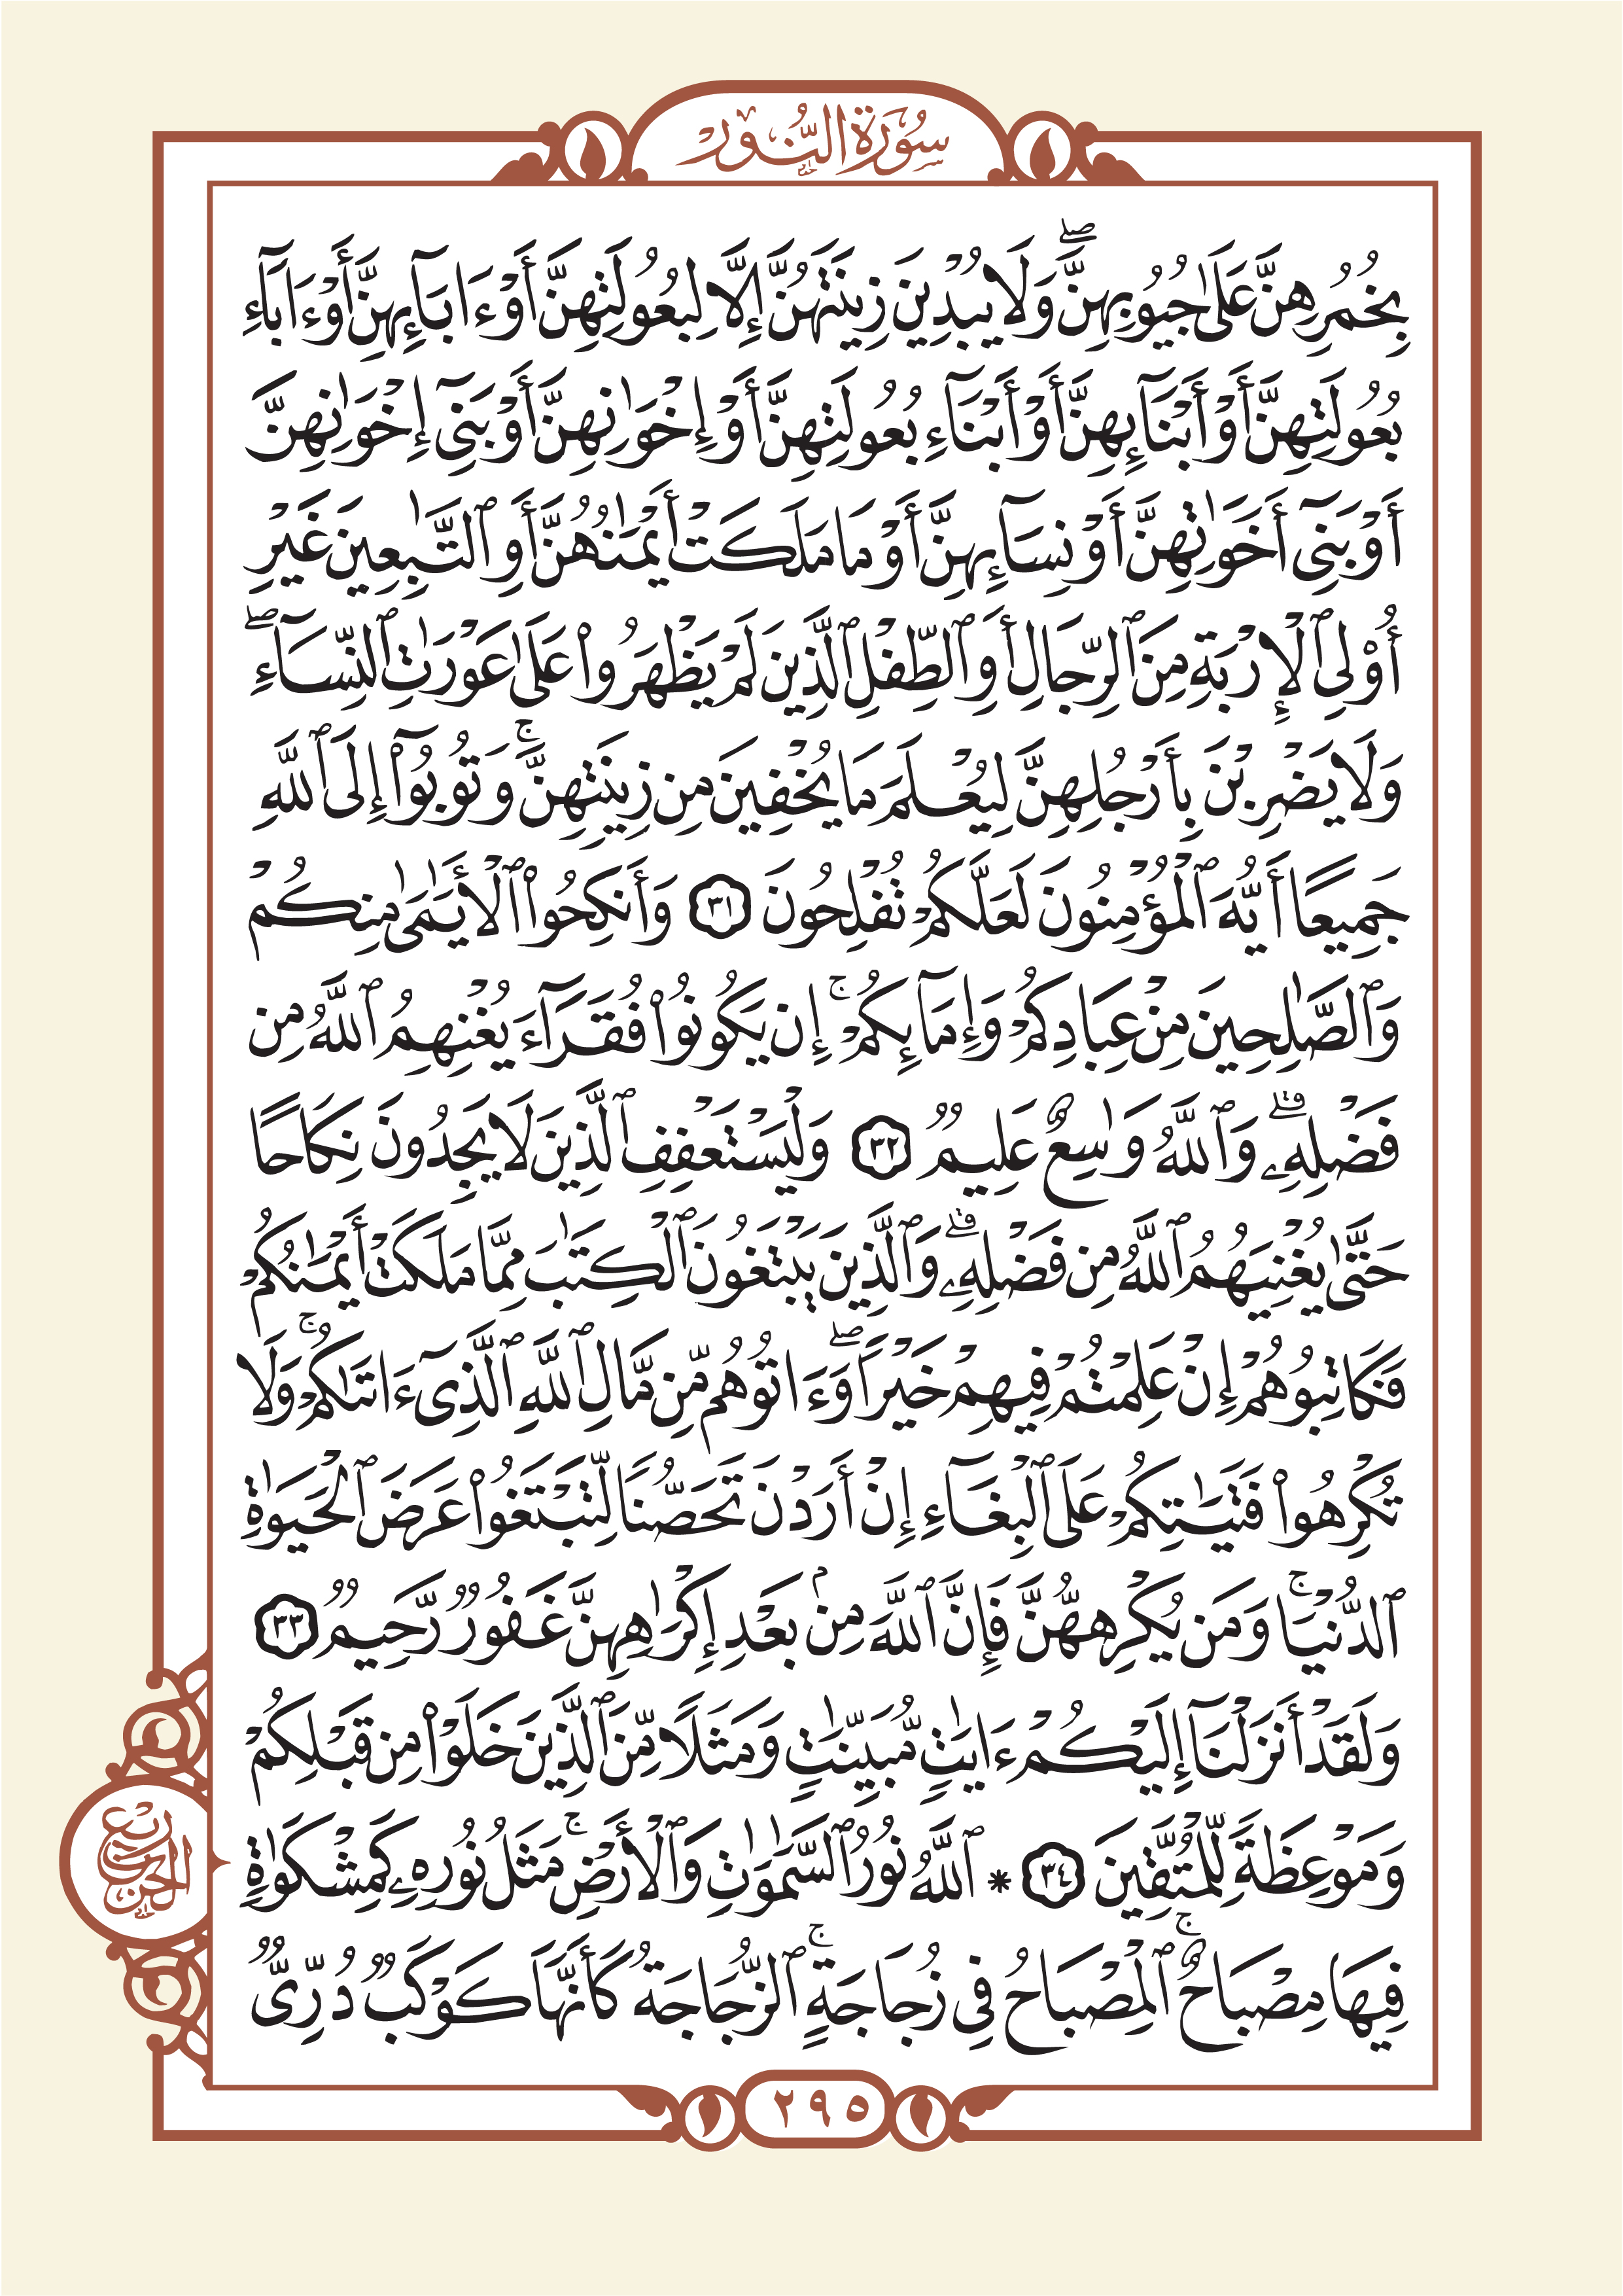 سُورَةُ النُّورِ
بِخُمُرِهِنَّ عَلَىٰ جُيُوبِهِنَّۖ وَلَا يُبْدِينَ زِينَتَهُنَّ إِلَّا لِبُعُولَتِهِنَّ أَوْ ءَابَآئِهِنَّ أَوْ ءَابَآءِ
بُعُولَتِهِنَّ أَوْ أَبْنَآئِهِنَّ أَوْ أَبْنَآءِ بُعُولَتِهِنَّ أَوْ إِخْوَٰنِهِنَّ أَوْ بَنِيٓ إِخْوَٰنِهِنَّ
أَوْ بَنِيٓ أَخَوَٰتِهِنَّ أَوْ نِسَآئِهِنَّ أَوْ مَا مَلَكَتْ أَيْمَٰنُهُنَّ أَوِ ٱلتَّٰبِعِينَ غَيْرِ
أُو۟لِي ٱلْإِرْبَةِ مِنَ ٱلرِّجَالِ أَوِ ٱلطِّفْلِ ٱلَّذِينَ لَمْ يَظْهَرُوا۟ عَلَىٰ عَوْرَٰتِ ٱلنِّسَآءِۖ
وَلَا يَضْرِبْنَ بِأَرْجُلِهِنَّ لِيُعْلَمَ مَا يُخْفِينَ مِن زِينَتِهِنَّۚ وَتُوبُوٓا۟ إِلَى ٱللَّهِ
جَمِيعًا أَيُّهَ ٱلْمُؤْمِنُونَ لَعَلَّكُمْ تُفْلِحُونَ ٣١ وَأَنكِحُوا۟ ٱلْأَيَٰمَىٰ مِنكُمْ
وَٱلصَّٰلِحِينَ مِنْ عِبَادِكُمْ وَإِمَآئِكُمْۚ إِن يَكُونُوا۟ فُقَرَآءَ يُغْنِهِمُ ٱللَّهُ مِن
فَضْلِهِۦۗ وَٱللَّهُ وَٰسِعٌ عَلِيمٌ ٣٢ وَلْيَسْتَعْفِفِ ٱلَّذِينَ لَا يَجِدُونَ نِكَاحًا
حَتَّىٰ يُغْنِيَهُمُ ٱللَّهُ مِن فَضْلِهِۦۗ وَٱلَّذِينَ يَبْتَغُونَ ٱلْكِتَٰبَ مِمَّا مَلَكَتْ أَيْمَٰنُكُمْ
فَكَاتِبُوهُمْ إِنْ عَلِمْتُمْ فِيهِمْ خَيْرًاۖ وَءَاتُوهُم مِّن مَّالِ ٱللَّهِ ٱلَّذِيٓ ءَاتَىٰكُمْۚ وَلَا
تُكْرِهُوا۟ فَتَيَٰتِكُمْ عَلَى ٱلْبِغَآءِ إِنْ أَرَدْنَ تَحَصُّنًا لِّتَبْتَغُوا۟ عَرَضَ ٱلْحَيَوٰةِ
ٱلدُّنْيَاۚ وَمَن يُكْرِههُّنَّ فَإِنَّ ٱللَّهَ مِنۢ بَعْدِ إِكْرَٰهِهِنَّ غَفُورٌ رَّحِيمٌ ٣٣
وَلَقَدْ أَنزَلْنَآ إِلَيْكُمْ ءَايَٰتٍ مُّبَيِّنَٰتٍ وَمَثَلًا مِّنَ ٱلَّذِينَ خَلَوْا۟ مِن قَبْلِكُمْ
وَمَوْعِظَةً لِّلْمُتَّقِينَ ٣٤ * ٱللَّهُ نُورُ ٱلسَّمَٰوَٰتِ وَٱلْأَرْضِۚ مَثَلُ نُورِهِۦ كَمِشْكَوٰةٍ
فِيهَا مِصْبَاحٌۖ ٱلْمِصْبَاحُ فِي زُجَاجَةٍۖ ٱلزُّجَاجَةُ كَأَنَّهَا كَوْكَبٌ دُرِّيٌّ
ربع الحزب
٢٩٥